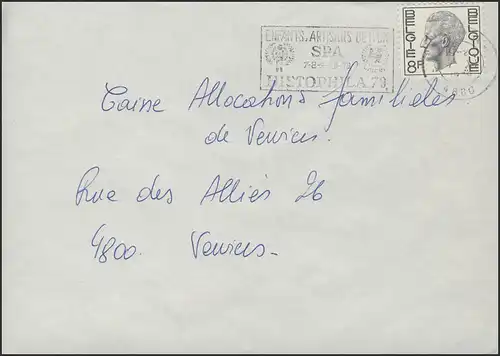 ENFANTS, ARTISANS DE
SPA
HISTOPHILA 79
BELGIE 8F BELGIQUE
Caisse Allocations familiales
de Verviers.
Rue des Alliés 26
4800. Verviers-